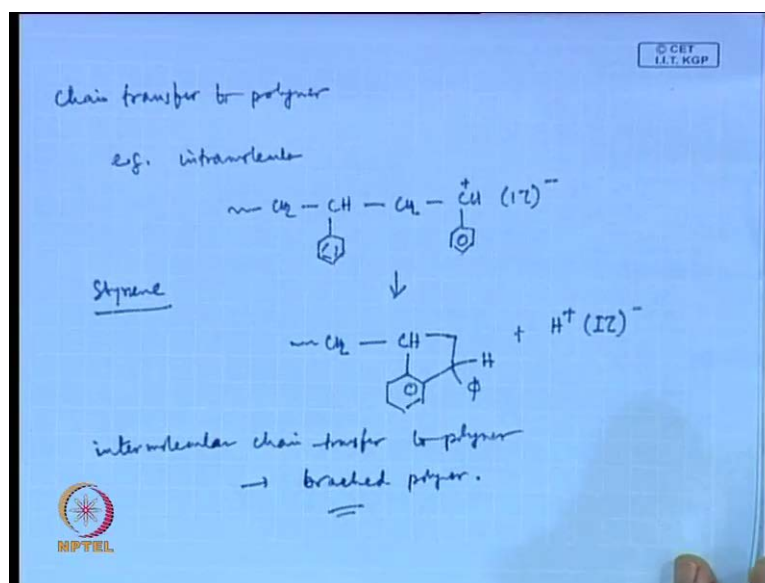 © CET
I.I.T. KGP
Chain transfer to polymer
e.g. intramolecular
~~ CH2 — CH — CH2 — CH+ (IZ)−
Styrene
~~ CH2 — CH + H+ (IZ)−
H
ϕ
intermolecular chain transfer to polymer
→ brached polymer.
NPTEL